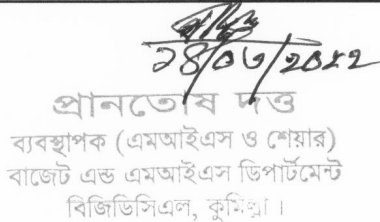 ১৪/০৩/২০২২
প্রানতোষ দত্ত
ব্যবস্থাপক (এমআইএস ও শেয়ার)
বাজেট এন্ড এমআইএস ডিপার্টমেন্ট
বিজিডিসিএল, কুমিল্লা।